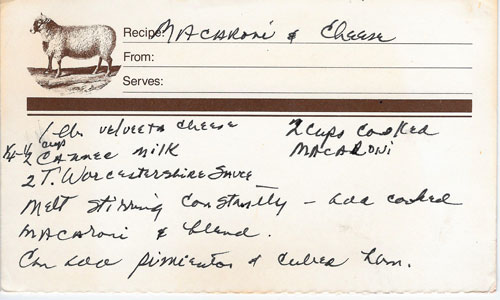 Recipe: Macaroni & Cheese
From:
Serves:
1 lb velveeta cheese
1/4-1/2 cups canned milk
2 T. Worcestershire Sauce
2 cups cooked
macaroni
Melt stirring constantly - add cooked
macaroni & blend.
Can add pimientos & cubed ham.